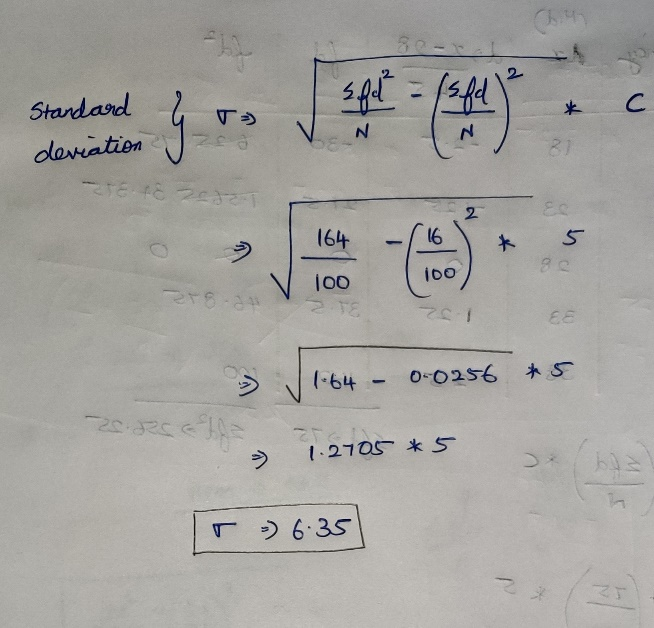 Standard deviation } σ ⇒ √(Σfd²/N - (Σfd/N)²) * C
⇒ √(164/100 - (16/100)²) * 5
⇒ √(1.64 - 0.0256) * 5
⇒ 1.2705 * 5
σ ⇒ 6.35